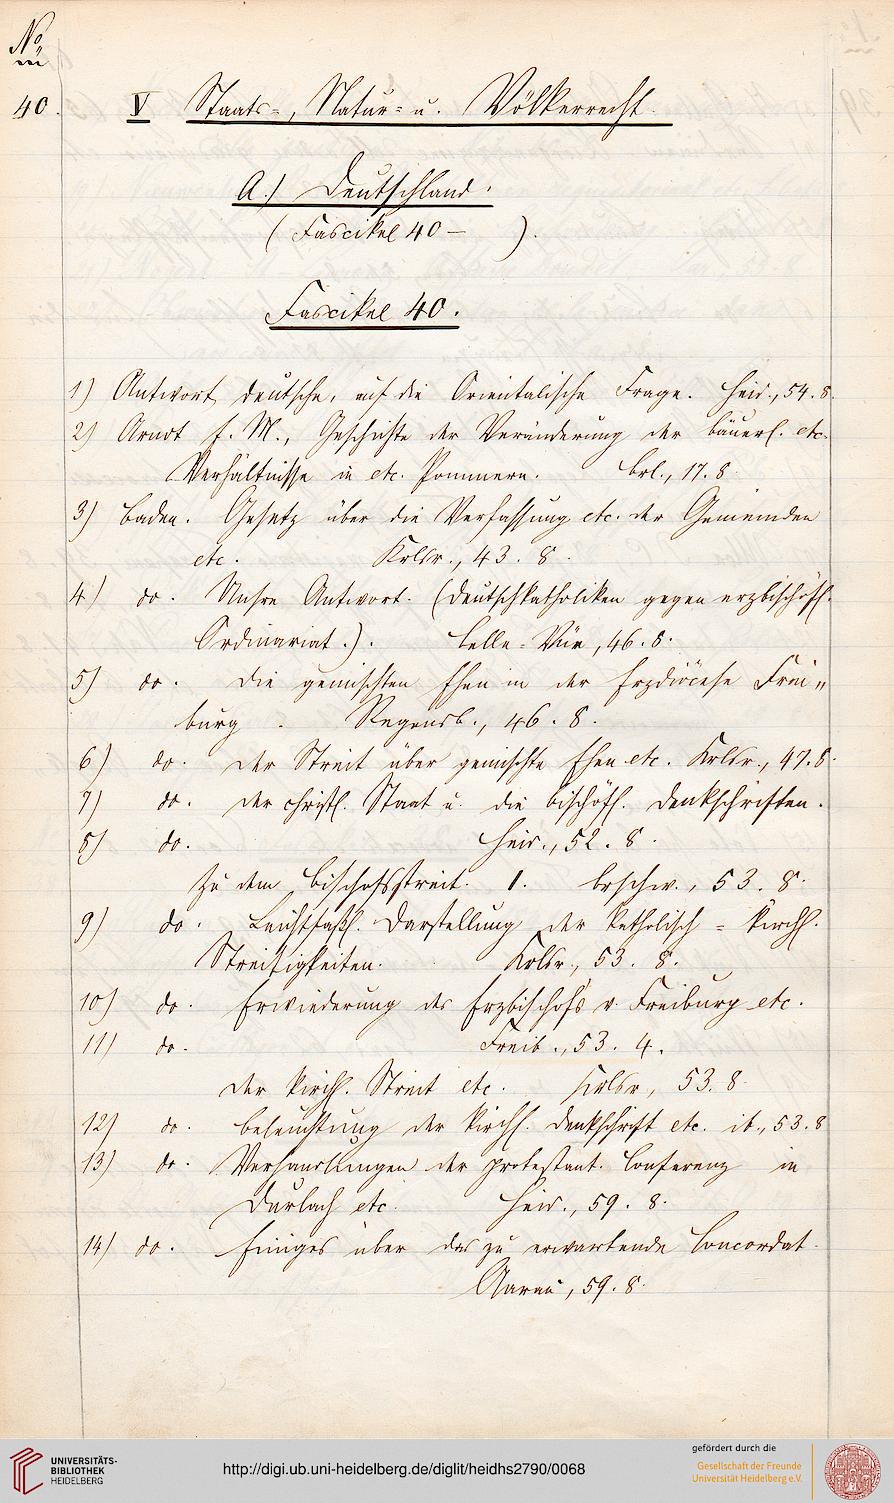 No
40. V Staats=, Natur= u. Völkerrecht.
A.) Deutschland.
(Fascikel 40 — ).
Fascikel 40.
1) Antwort, deutsche, auf die Orientalische Frage. Heid., 54. 8.
2) Arndt E. M., Geschichte der Veränderung der bäuerl. etc.
Verhältnisse in etc. Pommern. Brl., 17. 8.
3) Baden. Gesetz über die Verfassung etc. der Gemeinden
etc. Krlsr., 43. 8.
4) do. Unsre Antwort. (Deutschkatholiken gegen erzbischöfl.
Ordinariat.). Belle-Vüe, 46. 8.
5) do. Die gemischten Ehen in der Erzdiöcese Frei„
burg. Regensb., 46. 8.
6) do. Der Streit über gemischte Ehen etc. Krlsr., 47. 8.
7) do. Der christl. Staat u. die bischöfl. Denkschriften.
8) do. Heid., 52. 8.
Zu dem Bischofsstreit. 1. Brschw., 53. 8.
9) do. Leichtfaßl. Darstellung der katholisch = kirchl.
Streitigkeiten. Krlsr., 53. 8.
10) do. Erwiederung des Erzbischofs v. Freiburg etc.
11) do. Freib., 53. 4.
Der kirchl. Streit etc. Krlsr, 53. 8.
12) do. Beleuchtung der kirchl. Denkschrift etc. ib., 53. 8
13) do. Verhandlungen der protestant. Conferenz in
Durlach etc. Heid., 59. 8.
14) do. Einiges über das zu erwartende Concordat.
Aarau, 59. 8.
UNIVERSITÄTS-
BIBLIOTHEK
HEIDELBERG
http://digi.ub.uni-heidelberg.de/diglit/heidhs2790/0068
gefördert durch die
Gesellschaft der Freunde
Universität Heidelberg e.V.